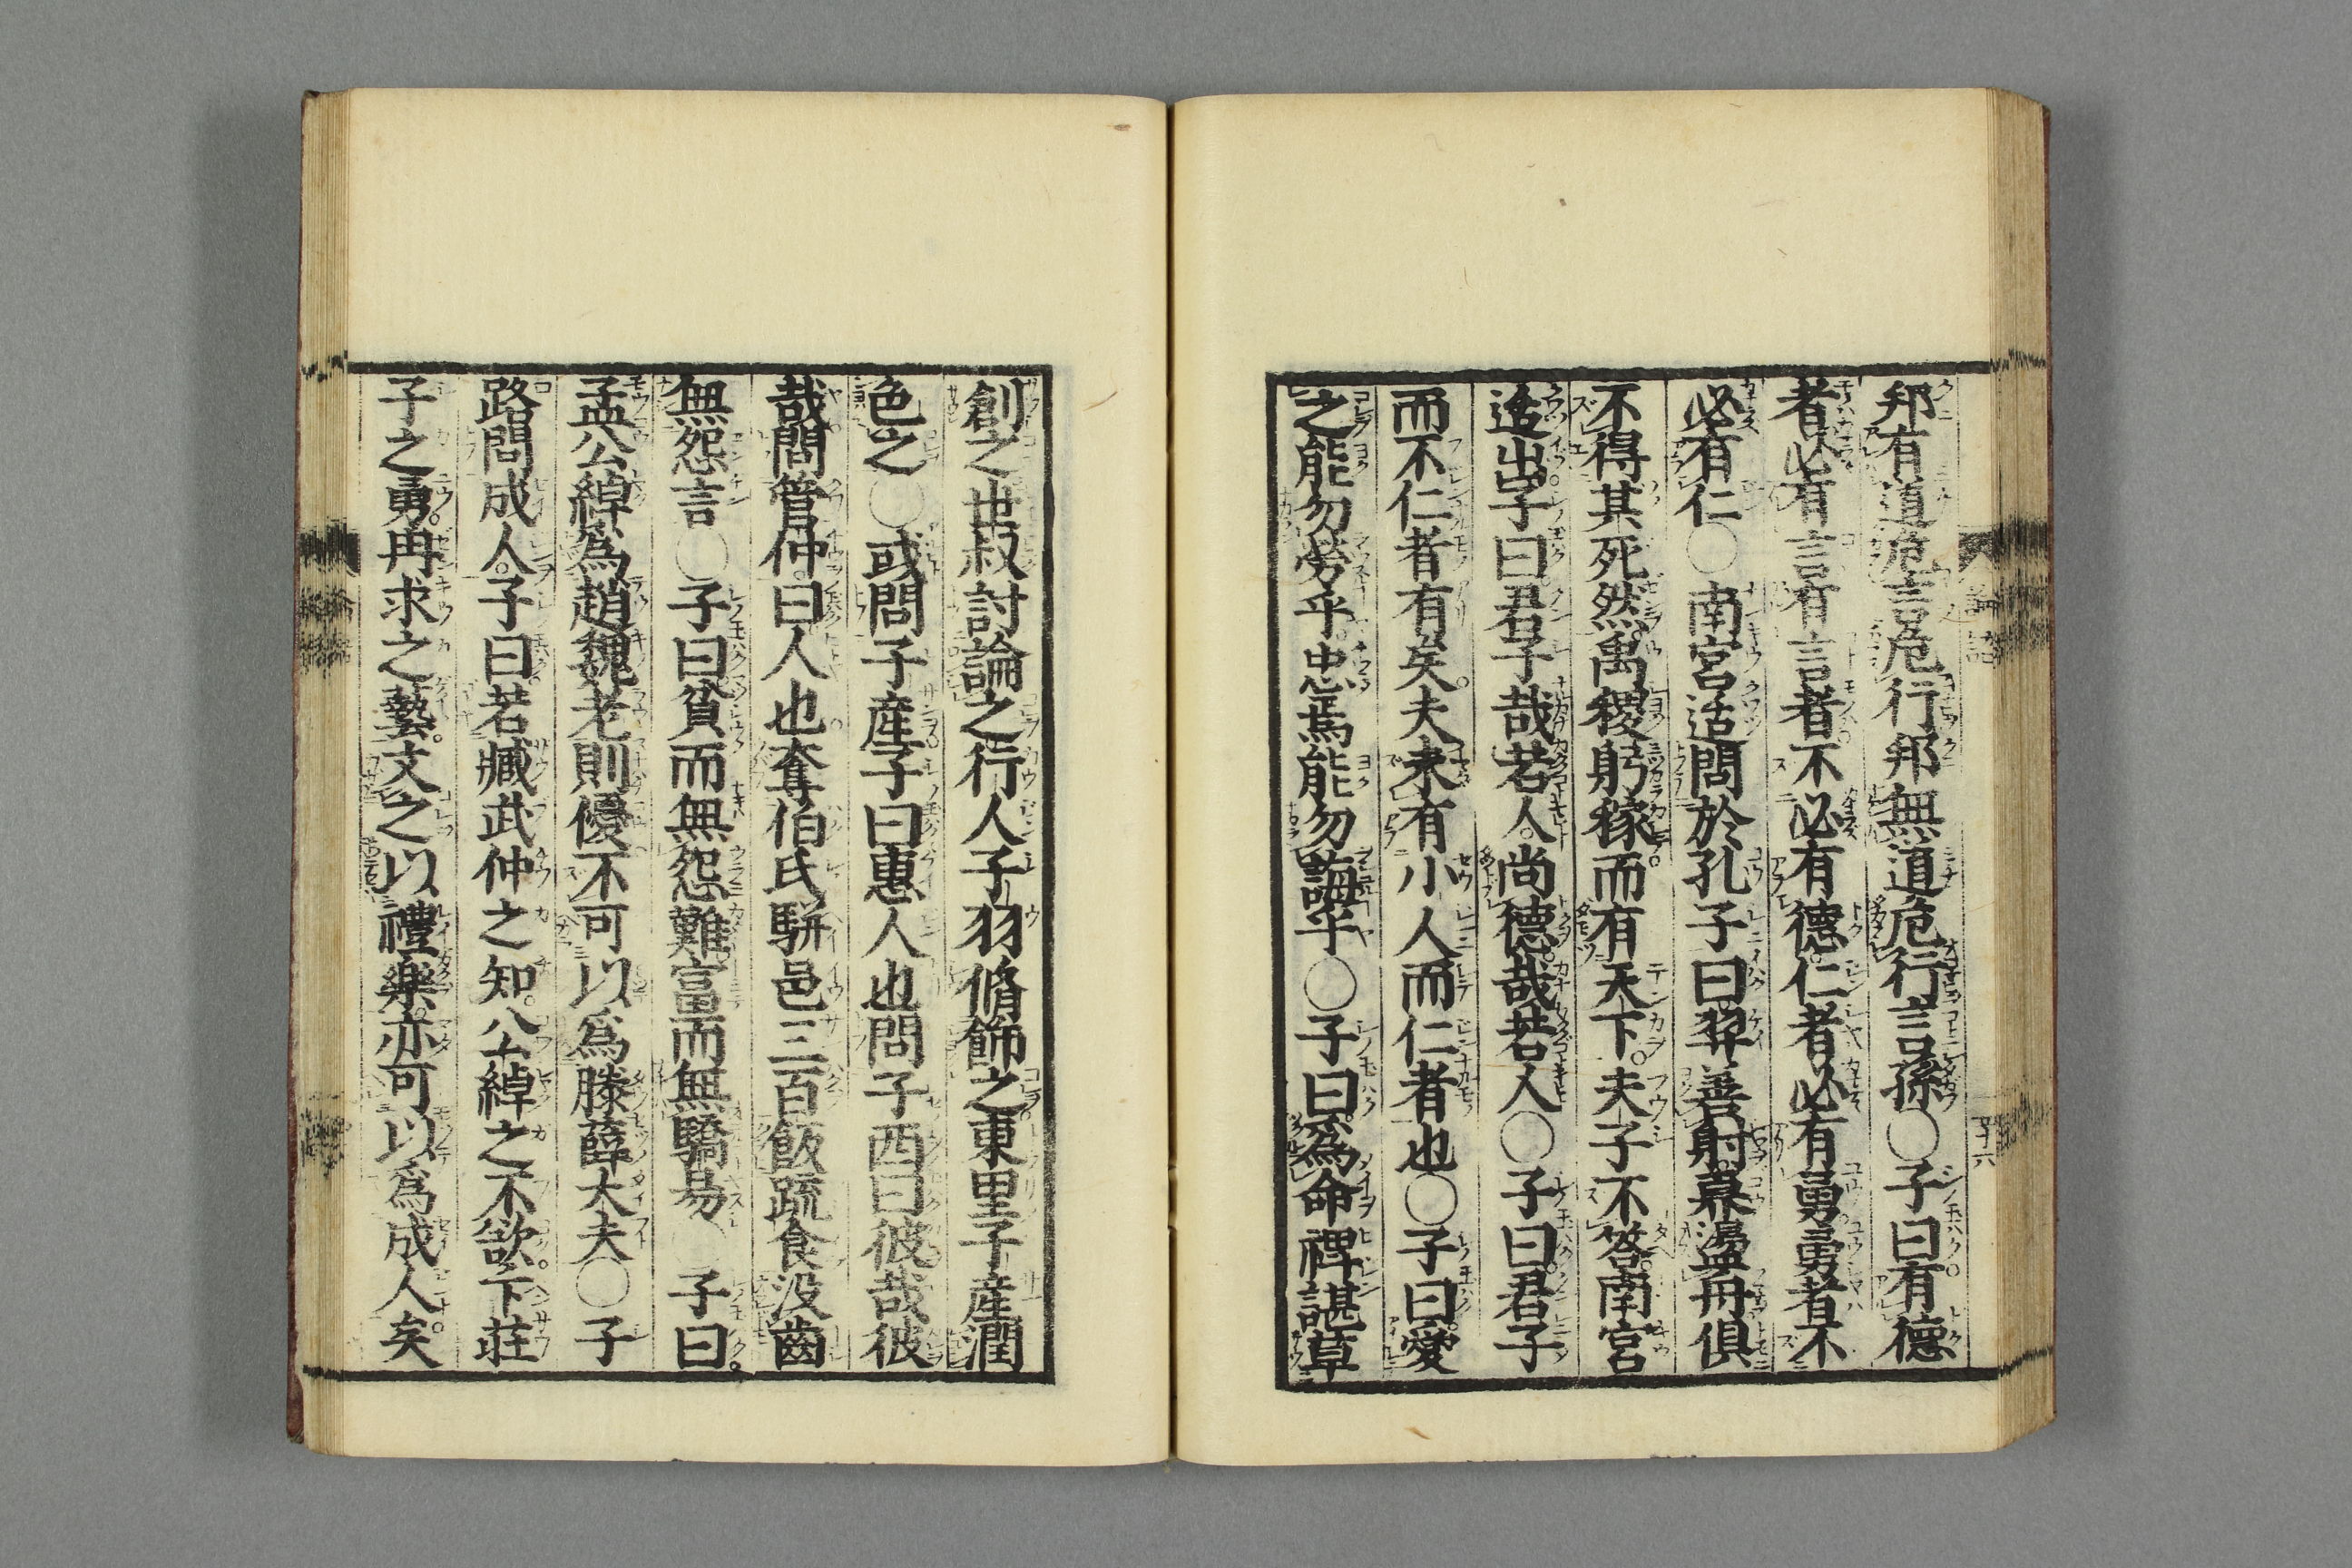 邦有道危言危行邦無道危行言孫○子曰有德
者必有言有言者不必有德仁者必有勇勇者不
必有仁○南宮适問於孔子曰羿善射奡盪舟俱
不得其死然禹稷躬稼而有天下夫子不答南宮
适出子曰君子哉若人尚德哉若人○子曰君子
而不仁者有矣夫未有小人而仁者也○子曰愛
之能勿勞乎忠焉能勿誨乎○子曰爲命裨諶草
創之世叔討論之行人子羽脩飾之東里子產潤
色之○或問子產子曰惠人也問子西曰彼哉彼
哉問管仲曰人也奪伯氏駢邑三百飯疏食没齒
無怨言○子曰貧而無怨難富而無驕易○子曰
孟公綽為趙魏老則優不可以爲滕薛大夫○子
路問成人子曰若臧武仲之知公綽之不欲卞莊
子之勇冉求之藝文之以禮樂亦可以爲成人矣